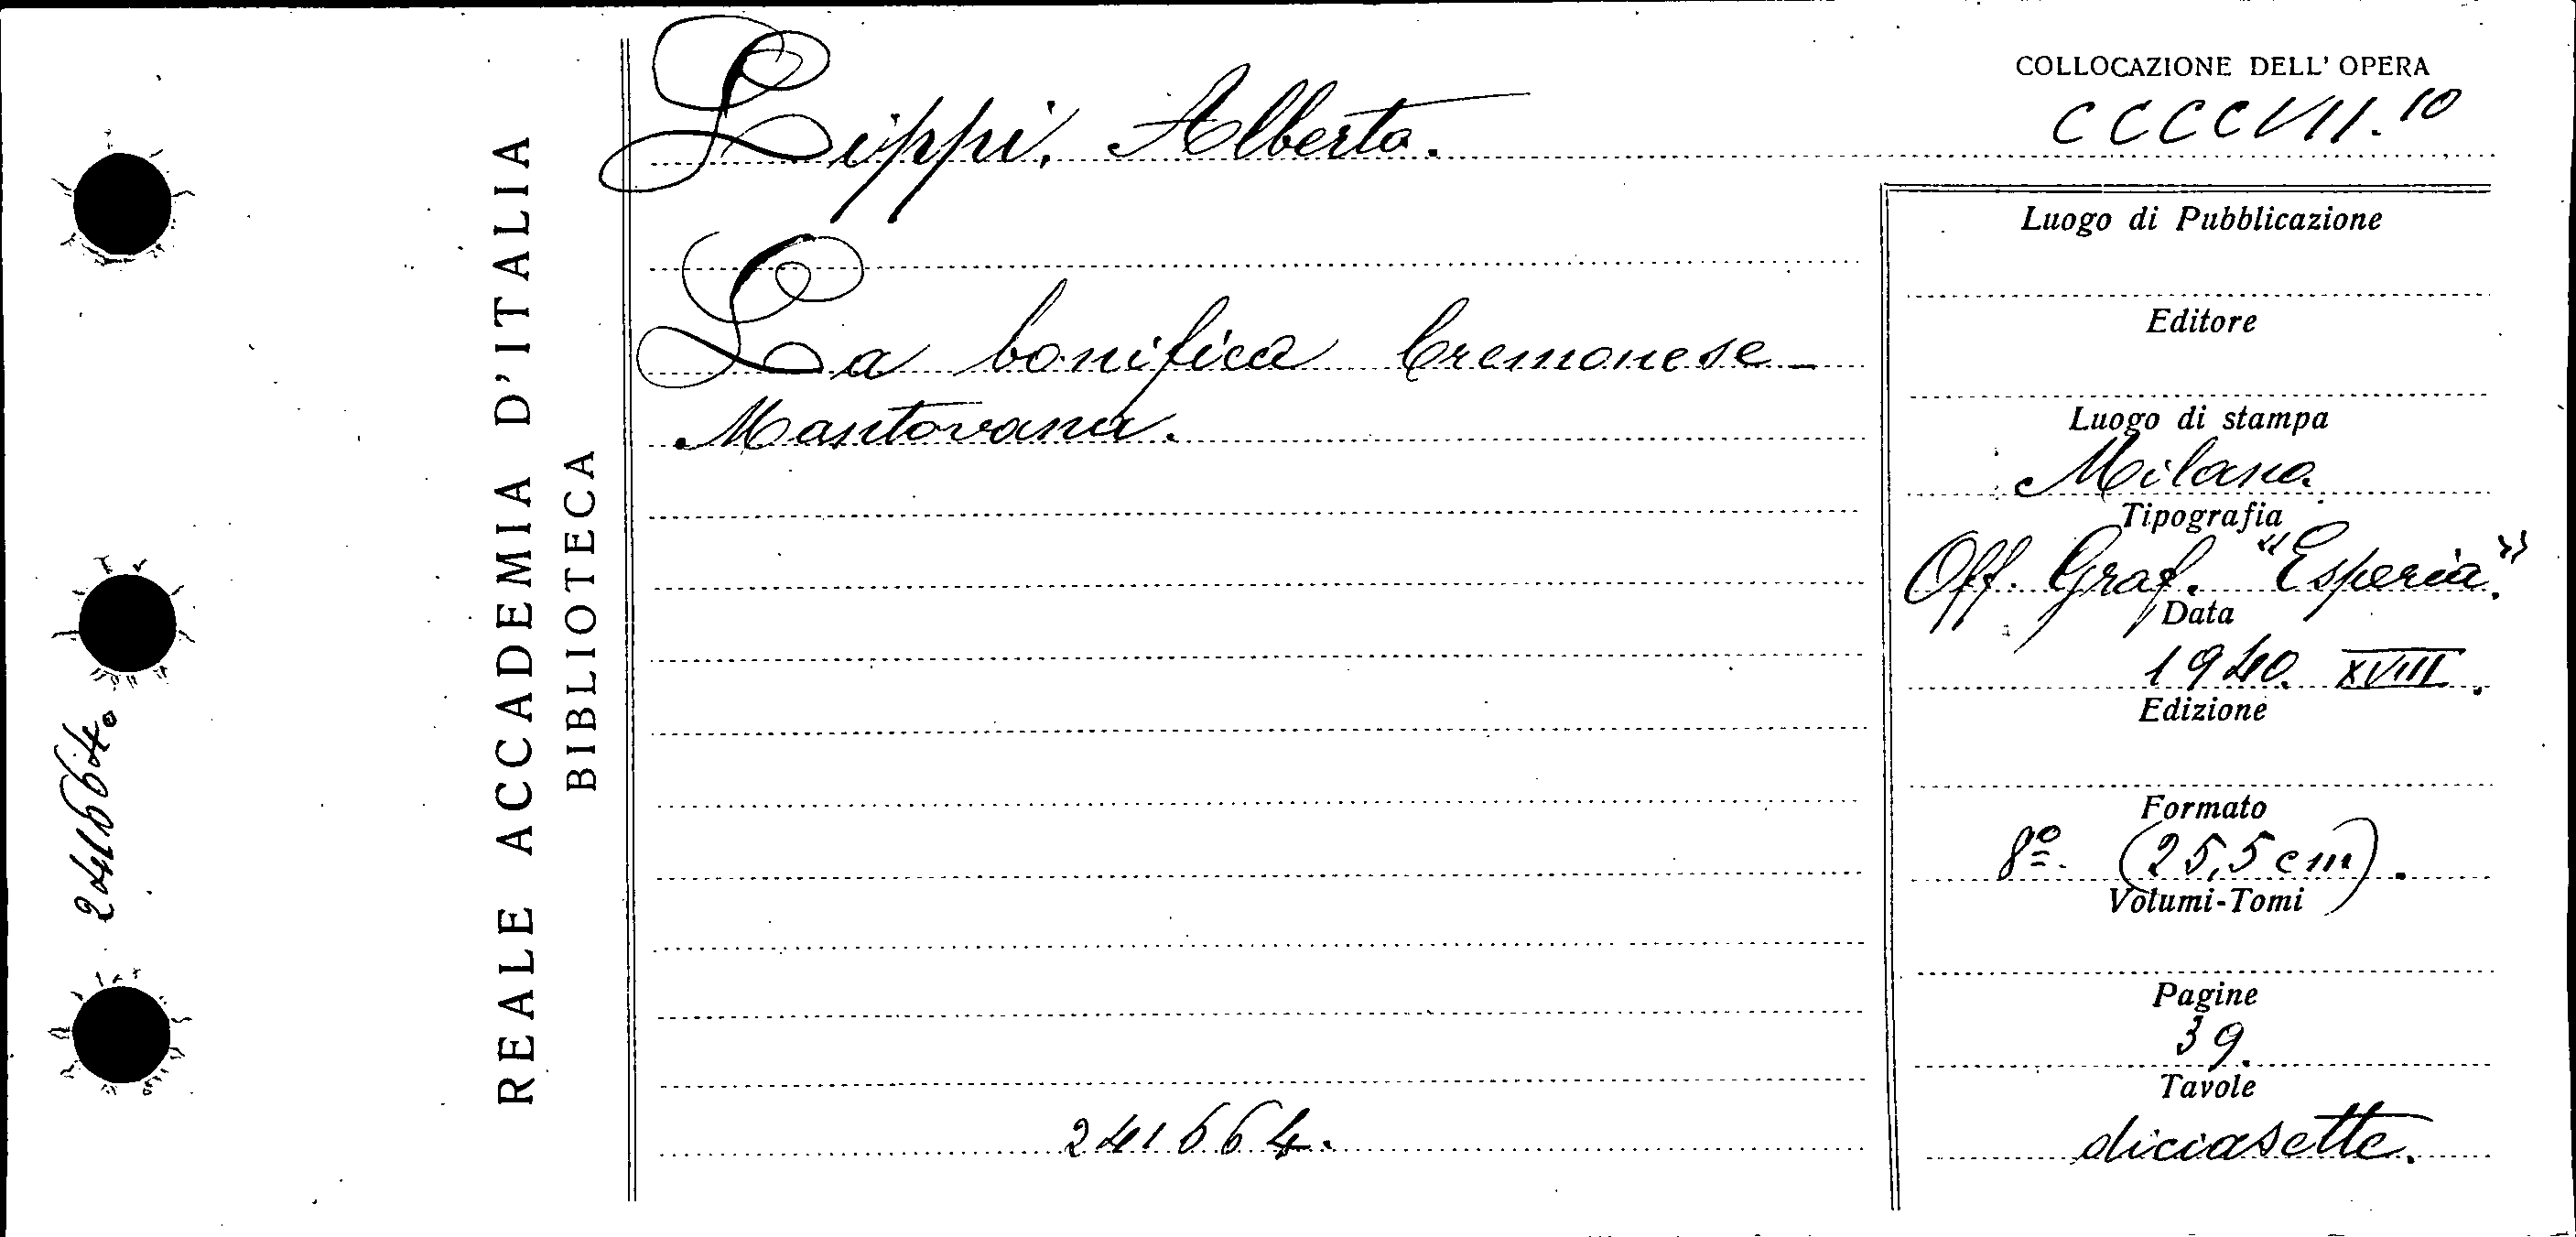 COLLOCAZIONE DELL' OPERA
CCCCVII.10
Lippi, Alberto.
La bonifica Cremonese-
Mantovana.
241664.
Luogo di Pubblicazione
Editore
Luogo di stampa
Milano
Tipografia
Off. Graf. "Esperia".
Data
1940. XVIII.
Edizione
Formato
8º. (25,5 cm).
Volumi-Tomi
Pagine
39.
Tavole
diciasette.
REALE ACCADEMIA D'ITALIA
BIBLIOTECA
241664.